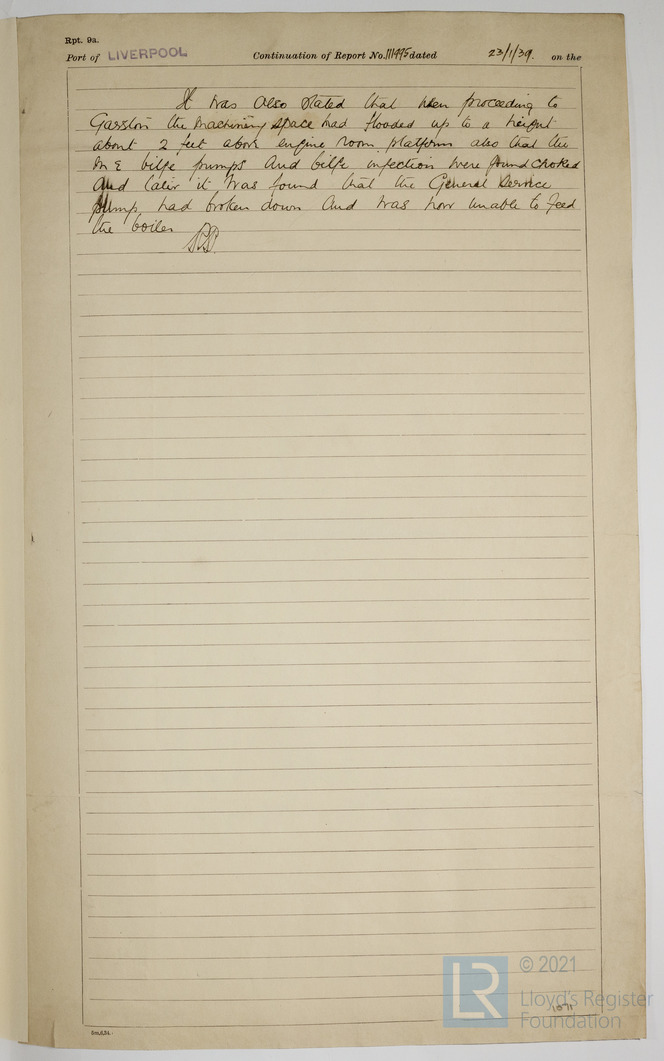 Rpt. 9a.
Port of LIVERPOOL Continuation of Report No. 111495 dated 23/1/39. on the
It was also stated that when proceeding to
Garston the machinery space had flooded up to a height
about 2 feet above engine room platform also that the
M E bilge pumps and bilge injection were found choked
and later it was found that the General Service
pump had broken down and was now unable to feed
the boiler
5m,6,34.
1071
© 2021
LR
Lloyd's Register
Foundation